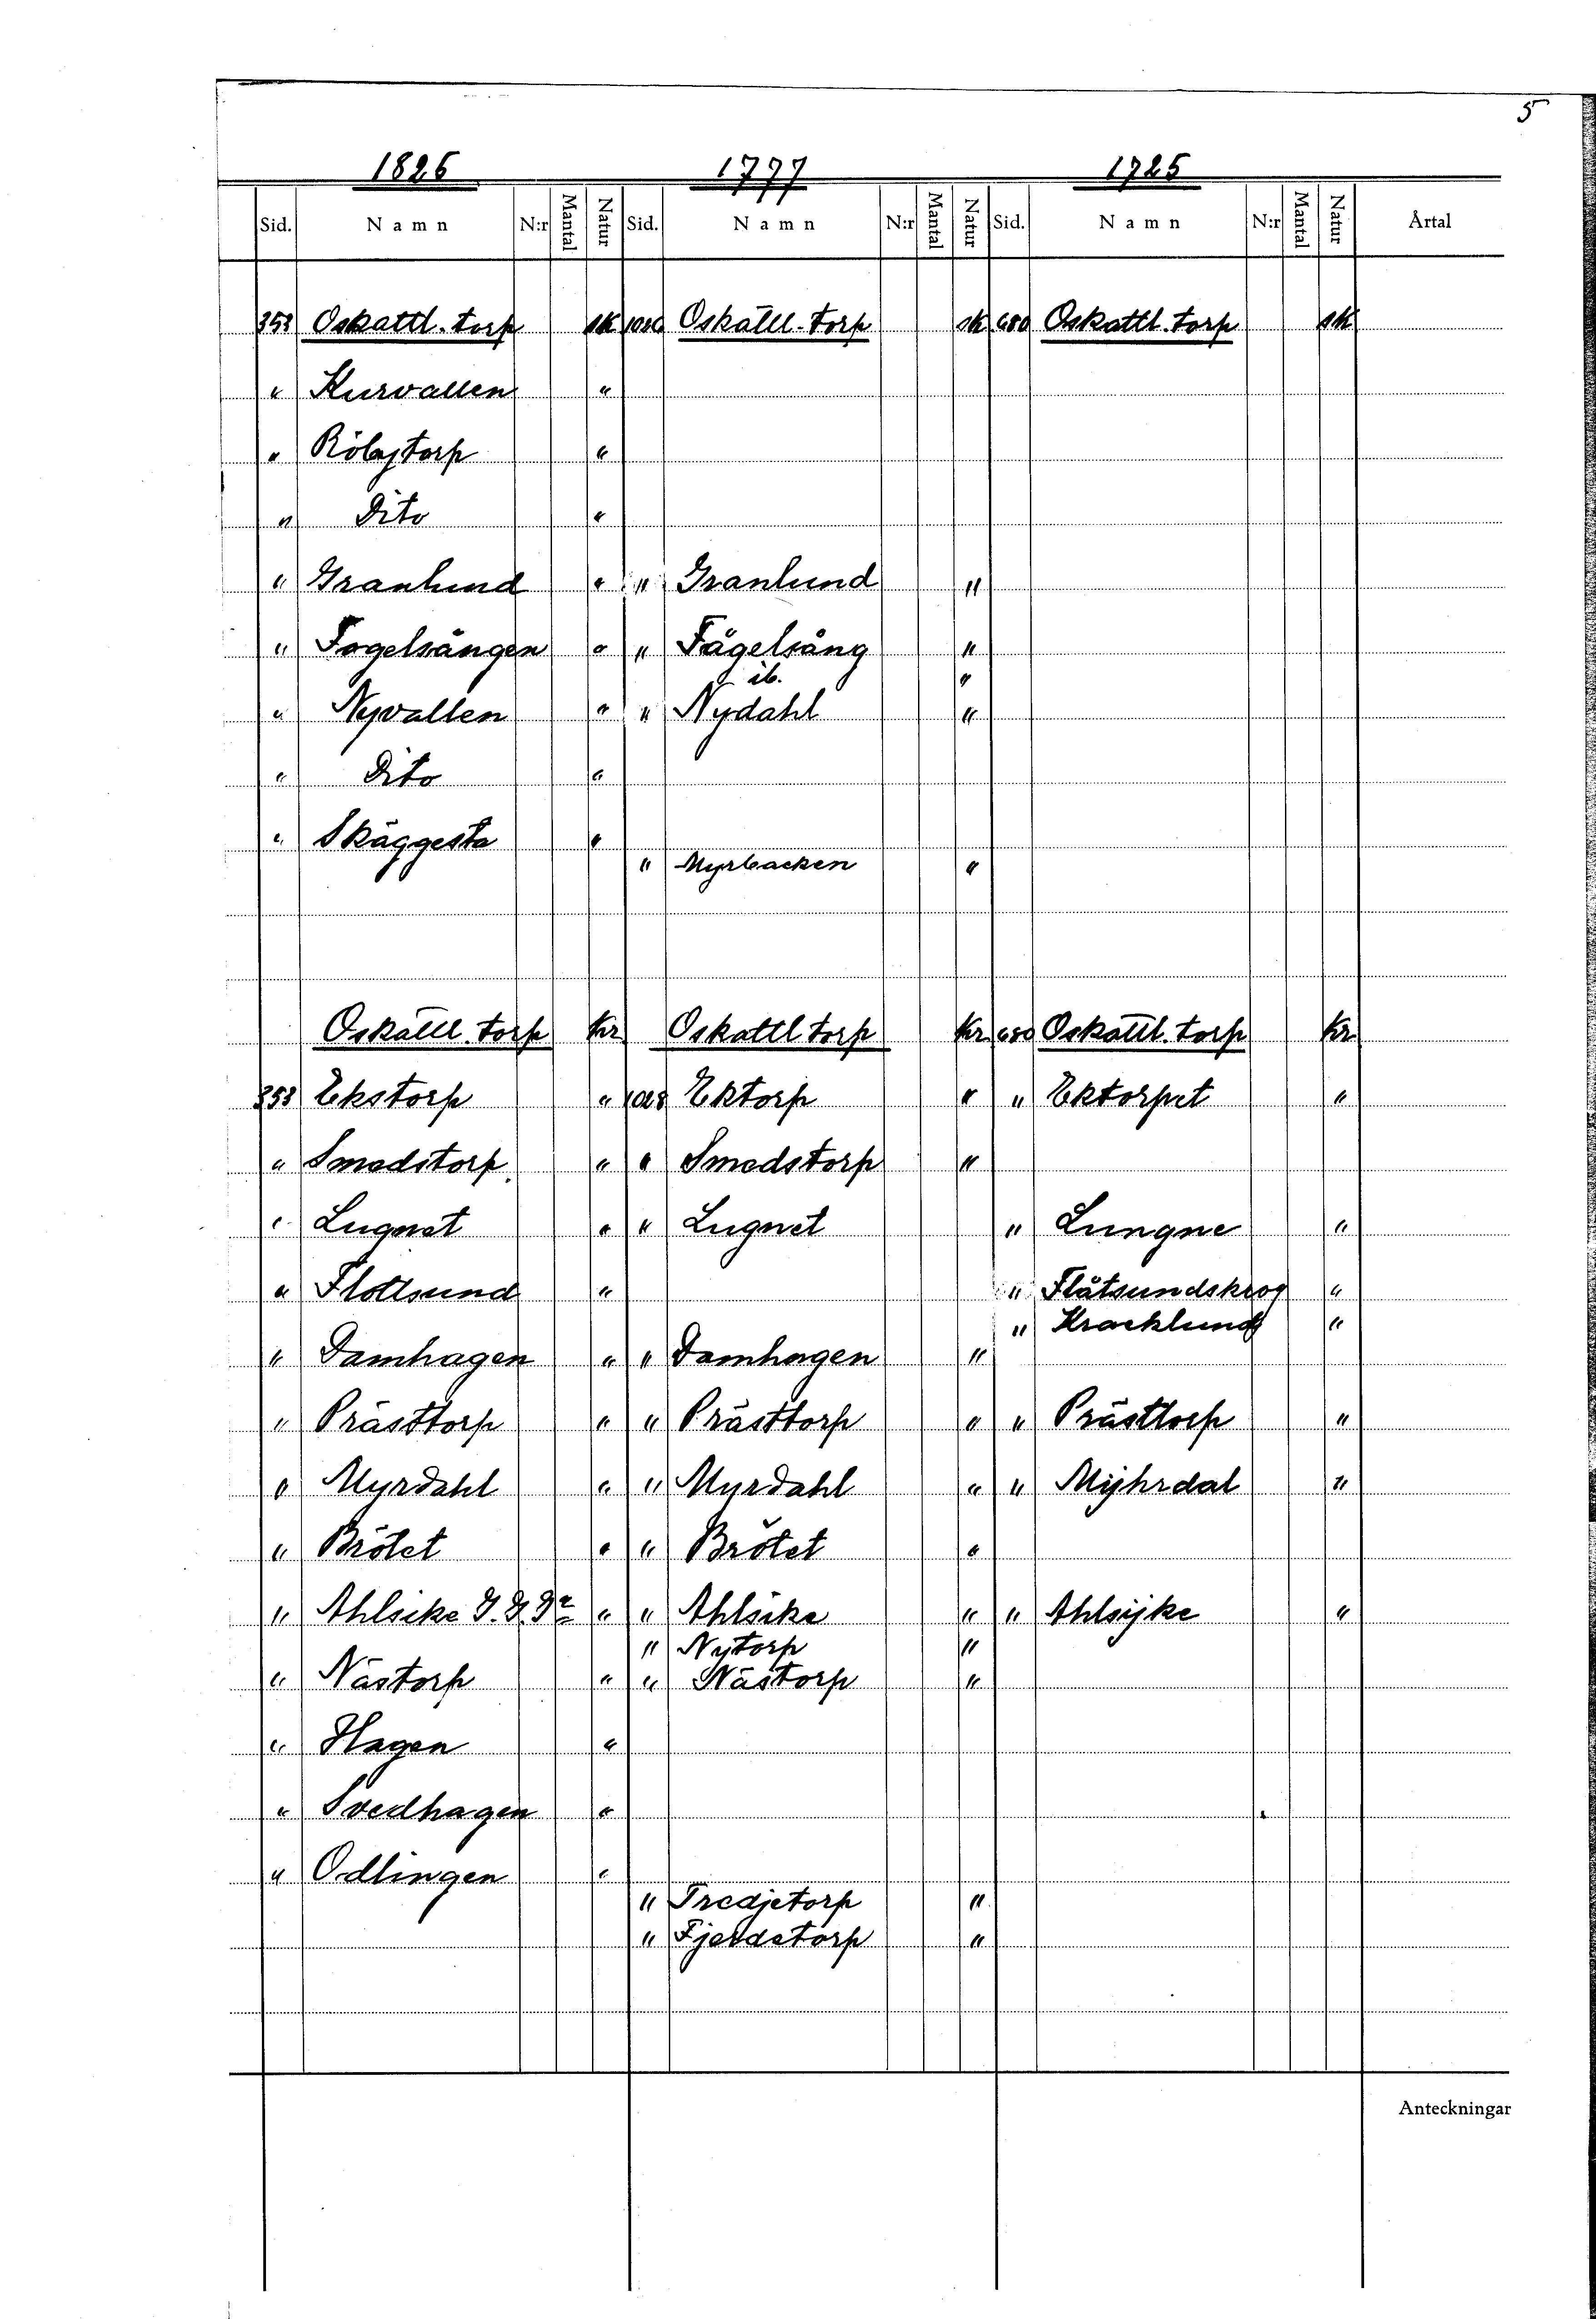 5
1825 1777 1725
Sid. Namn N:r Mantal Natur Sid. Namn N:r Mantal Natur Sid. Namn N:r Mantal Natur Årtal
353 Oskattl. torp sk Oskattl. torp sk 680 Oskattl. torp sk
" Kurvallen "
" "
" Dito "
" Granlund " " Granlund "
" Fogelsången " " Fågelsång "
ib. "
" Nyvallen " " Nydahl "
" Dito "
" Skäggesta "
" Myrbacken "
Oskattl. torp kr Oskattl torp kr 680 Oskattl. torp kr
353 Ekstorp " 1028 Ektorp " " Ektorpet "
" Smedstorp " " Smedstorp "
" Lugnet " " Lugnet " Lungne "
" Flottsund " " Flåtsundskrog "
" Kracklund "
" Damhagen " " Damhagen "
" Prästtorp " " Prästtorp " " Prästtorp "
" Myrdahl " " Myrdahl " " Mijhrdal "
" Brötet " " Brötet "
" Ahlsike " " Ahlsike " " Ahlsijke "
" Nytorp "
" Nästorp " " Nästorp "
" Hagen "
" Svedhagen "
" Odlingen "
" Tredjetorp "
" Fjerdetorp "
Anteckningar